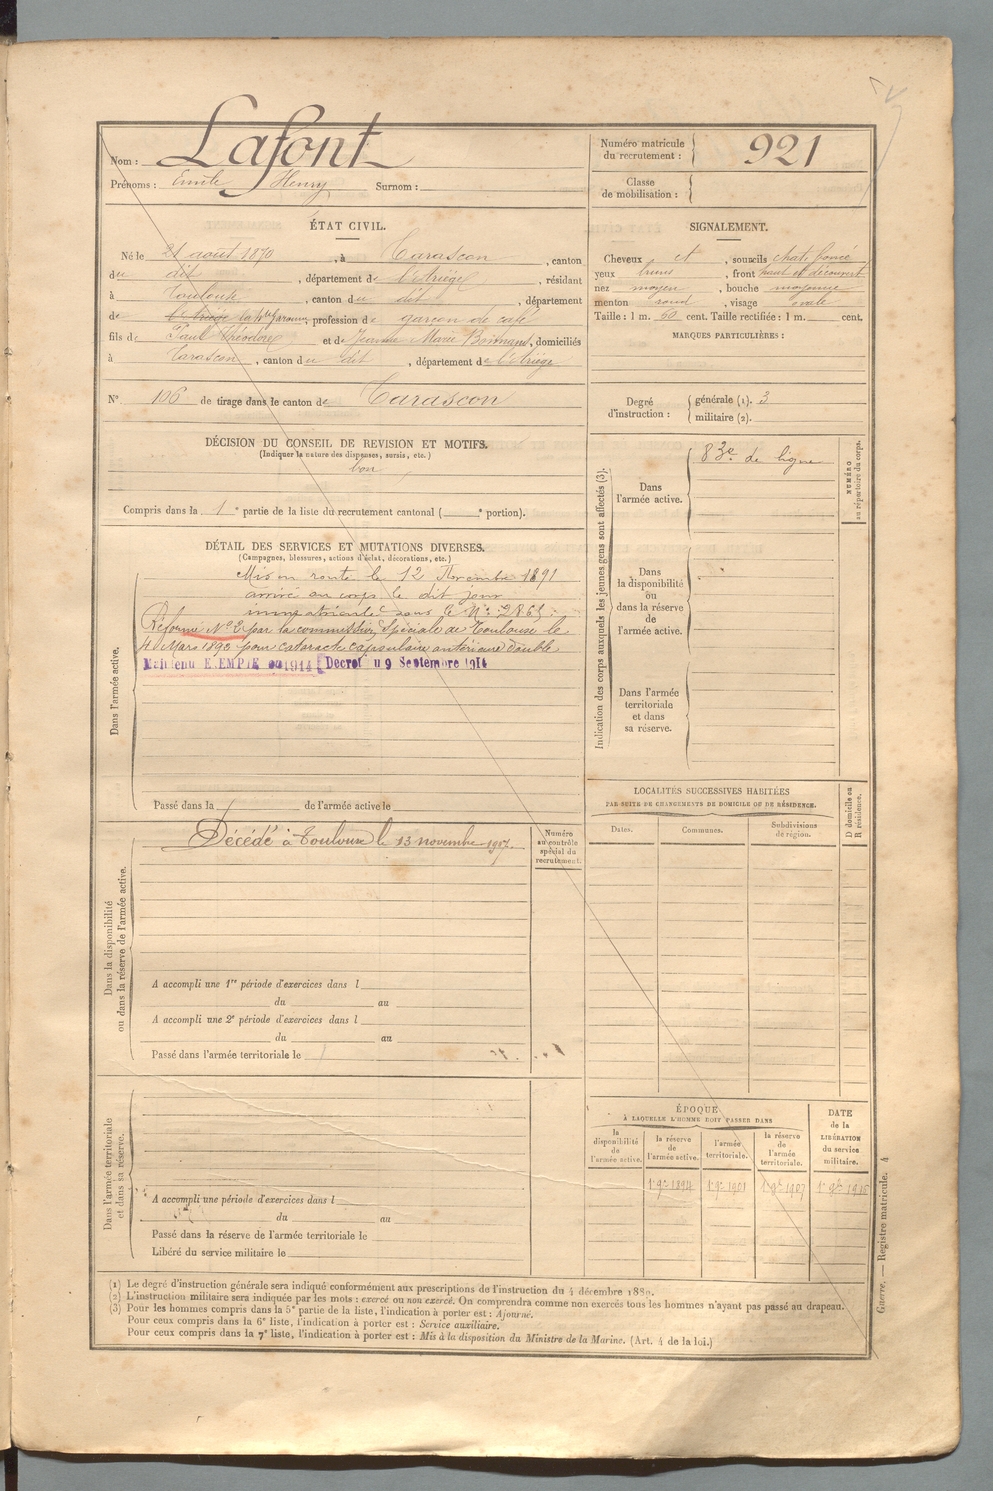 Nom : Lafont
Prénoms : Emile Henry Surnom :
Numéro matricule du recrutement : 921
Classe de mobilisation :
ÉTAT CIVIL.
Né le 21 août 1870, à Tarascon, canton
du dit, département de l'Ariège, résidant
à Toulouse, canton du dit, département
de l'Ariège la Hte Garonne, profession de garçon de café
fils de Paul Théodore et de Jeanne Marie, domiciliés
à Tarascon, canton du dit, département de l'Ariège
N° 106 de tirage dans le canton de Tarascon
SIGNALEMENT.
Cheveux et, sourcils chat. foncé
yeux bruns, front haut et découvert
nez moyen, bouche moyenne
menton rond, visage ovale
Taille : 1 m. 60 cent. Taille rectifiée : 1 m. cent.
MARQUES PARTICULIÈRES :
Degré d'instruction : générale (1). 3
militaire (2).
DÉCISION DU CONSEIL DE REVISION ET MOTIFS.
(Indiquer la nature des dispenses, sursis, etc.)
bon
Compris dans la 1e partie de la liste du recrutement cantonal ( e portion).
DÉTAIL DES SERVICES ET MUTATIONS DIVERSES.
(Campagnes, blessures, actions d'éclat, décorations, etc.)
Dans l'armée active.
Mis en route le 12 Novembre 1891
arrivé au corps le dit jour
immatriculé sous le N°
Réformé N° 2 par la commission Spéciale de Toulouse le
Mars pour cataracte capsulaire antérieure double
Maintenu EXEMPTÉ en 1914 Décret du 9 Septembre 1914
Passé dans la de l'armée active le
Dans la disponibilité ou dans la réserve de l'armée active.
Décédé à Toulouse le 13 novembre
Numéro au contrôle spécial du recrutement.
A accompli une 1re période d'exercices dans l
du au
A accompli une 2e période d'exercices dans l
du au
Passé dans l'armée territoriale le
Dans l'armée territoriale et dans sa réserve.
A accompli une période d'exercices dans l
du au
Passé dans la réserve de l'armée territoriale le
Libéré du service militaire le
Indication des corps auxquels les jeunes gens sont affectés (3).
Dans l'armée active.
83e de ligne
NUMÉRO au répertoire du corps.
Dans la disponibilité ou dans la réserve de l'armée active.
Dans l'armée territoriale et dans sa réserve.
LOCALITÉS SUCCESSIVES HABITÉES
PAR SUITE DE CHANGEMENTS DE DOMICILE OU DE RÉSIDENCE.
Dates. Communes. Subdivisions de région.
D domicile ou R résidence.
ÉPOQUE
À LAQUELLE L'HOMME DOIT PASSER DANS
la disponibilité de l'armée active.
la réserve de l'armée active.
l'armée territoriale.
la réserve de l'armée territoriale.
DATE de la LIBÉRATION du service militaire.
1 9e 1894 1 9e 1901 1 9e 1907 1 9e 1916
(1) Le degré d'instruction générale sera indiqué conformément aux prescriptions de l'instruction du 4 décembre 1889.
(2) L'instruction militaire sera indiquée par les mots : exercé ou non exercé. On comprendra comme non exercés tous les hommes n'ayant pas passé au drapeau.
(3) Pour les hommes compris dans la 5e partie de la liste, l'indication à porter est : Ajourné.
Pour ceux compris dans la 6e liste, l'indication à porter est : Service auxiliaire.
Pour ceux compris dans la 7e liste, l'indication à porter est : Mis à la disposition du Ministre de la Marine. (Art. 4 de la loi.)
Guerre. — Registre matricule. 4